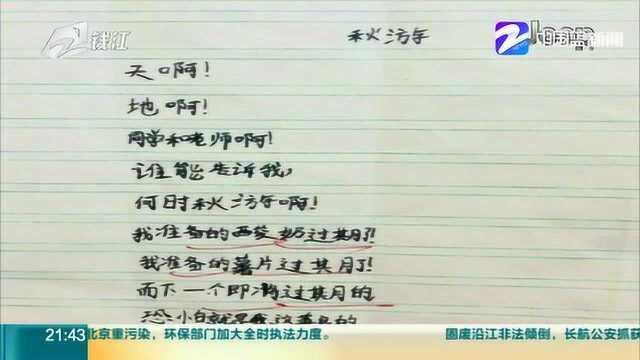 钱江
秋游
天啊!
地啊!
同学和老师啊!
谁能告诉我,
何时秋游啊!
我准备的酸奶过期了!
我准备的薯片过期了!
而下一个即将过期的
恐怕就是我
21:43
北京重污染，环保部门加大全时执法力度。
固废沿江非法倾倒，长航公安抓获